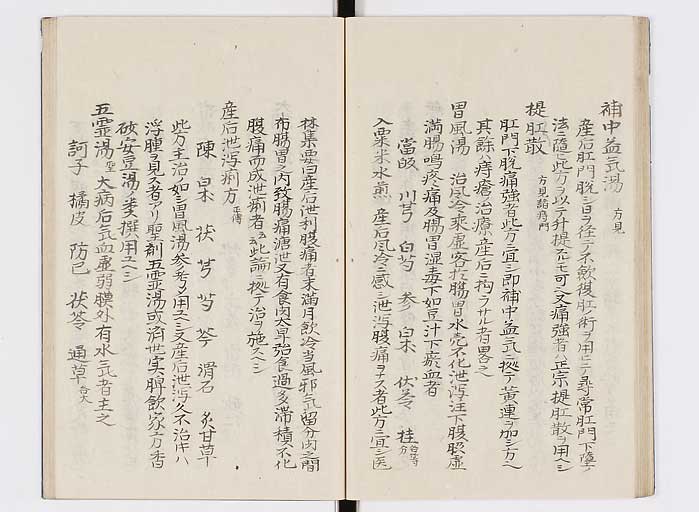 補中益気湯 方見
産后肛門脱シ日ヲ径テ不斂復肛ノ術ヲ用ヒテ尋常肛門下墜ノ
法ニ随ヒ此方ヲ以テ升提スルモ可ヘ又痛強者ハ正宗提肛散ヲ用スヘシ
提肛散 方見諸痔門
肛門下脱痛強者此方ニ宜シ即補中益気ニ拠テ黄連ヲ加シ方ヘ
其餘ハ痔瘡治療産后ニ拘ラサル者畧之
胃風湯 治風冷乗虚客於腸胃水穀不化泄瀉注下腹脇虚
満腸鳴疼痛及腸胃湿毒下如豆汁下瘀血者
當皈 川芎 白芍 参 白朮 伏苓 桂 各等分
入粟米水煎 産后風冷ニ感シ泄瀉腹痛ヲナス者此方ニ宜シ医
林集要曰産后泄利腹痛者未満月飲冷当風邪気留分肉之間
布腸胃之内致腸痛溏泄又有食肉太早強食過多滞積不化
腹痛而成泄痢者云此論ニ拠テ治ヲ施スヘシ
産后泄瀉痢方 正傳
陳 朮 伏 芎 芍 芩 滑石 炙甘草
此方主治ノ如シ胃風湯参考シ用スヘシ又産后泄瀉久不治キハ
浮腫ヲ見ス者アリ聖剤五霊湯或済世実脾飲家方香
砂安豆湯ノ類撰用スヘシ
五霊湯 聖 大病后気血虚弱膜外有水気者主之
訶子 橘皮 防已 茯苓 通草 各大